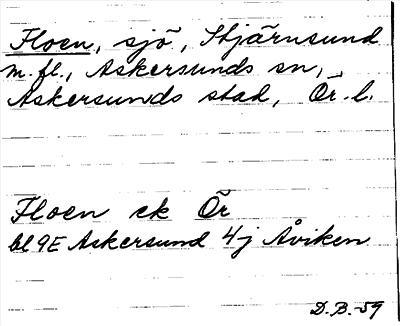 Floen, sjö, Stjärnsund
m.fl., Askersunds sn,
Askersunds stad, Ör. l.
Floen ek Ör
bl 9E Askersund 4j Åviken
D.B.-59